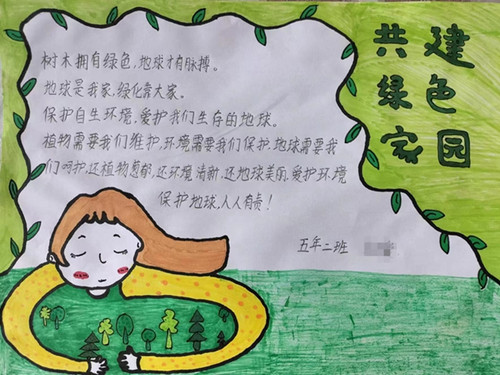 共建
绿色
家园
树木拥有绿色，地球才有脉搏。
地球是我家，绿化靠大家。
保护自生环境，爱护我们生存的地球。
植物需要我们维护，环境需要我们保护，地球需要我
们呵护，还植物葱郁，还环境清新，还地球美丽，爱护环境
保护地球，人人有责！
五年二班